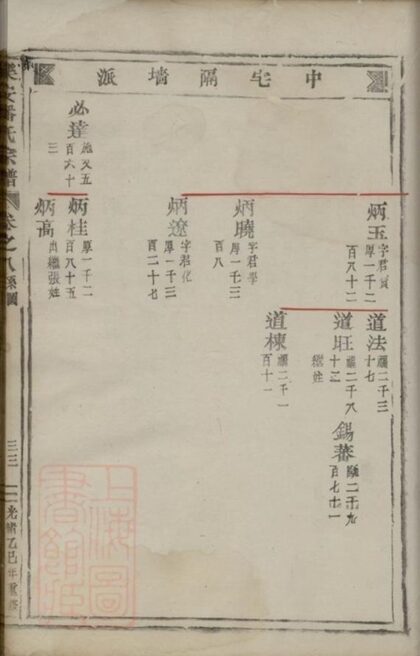 中宅隔墙派
炳玉
字君賓
厚一千二
百八十二
道法
禩二千三
十七
道旺
禩二千八
十三
繼姓
錫蕃
百七十一
道棟
禩二千一
百十一
炳曉
字君學
厚一千三
百八
炳遼
字君化
厚一千三
百二十七
必達
百六十
三
炳桂
厚一千二
百八十五
炳高
出繼張姓
潘氏宗譜
卷之八
系圖
三三
光緒乙巳年重修
上海圖
書館藏